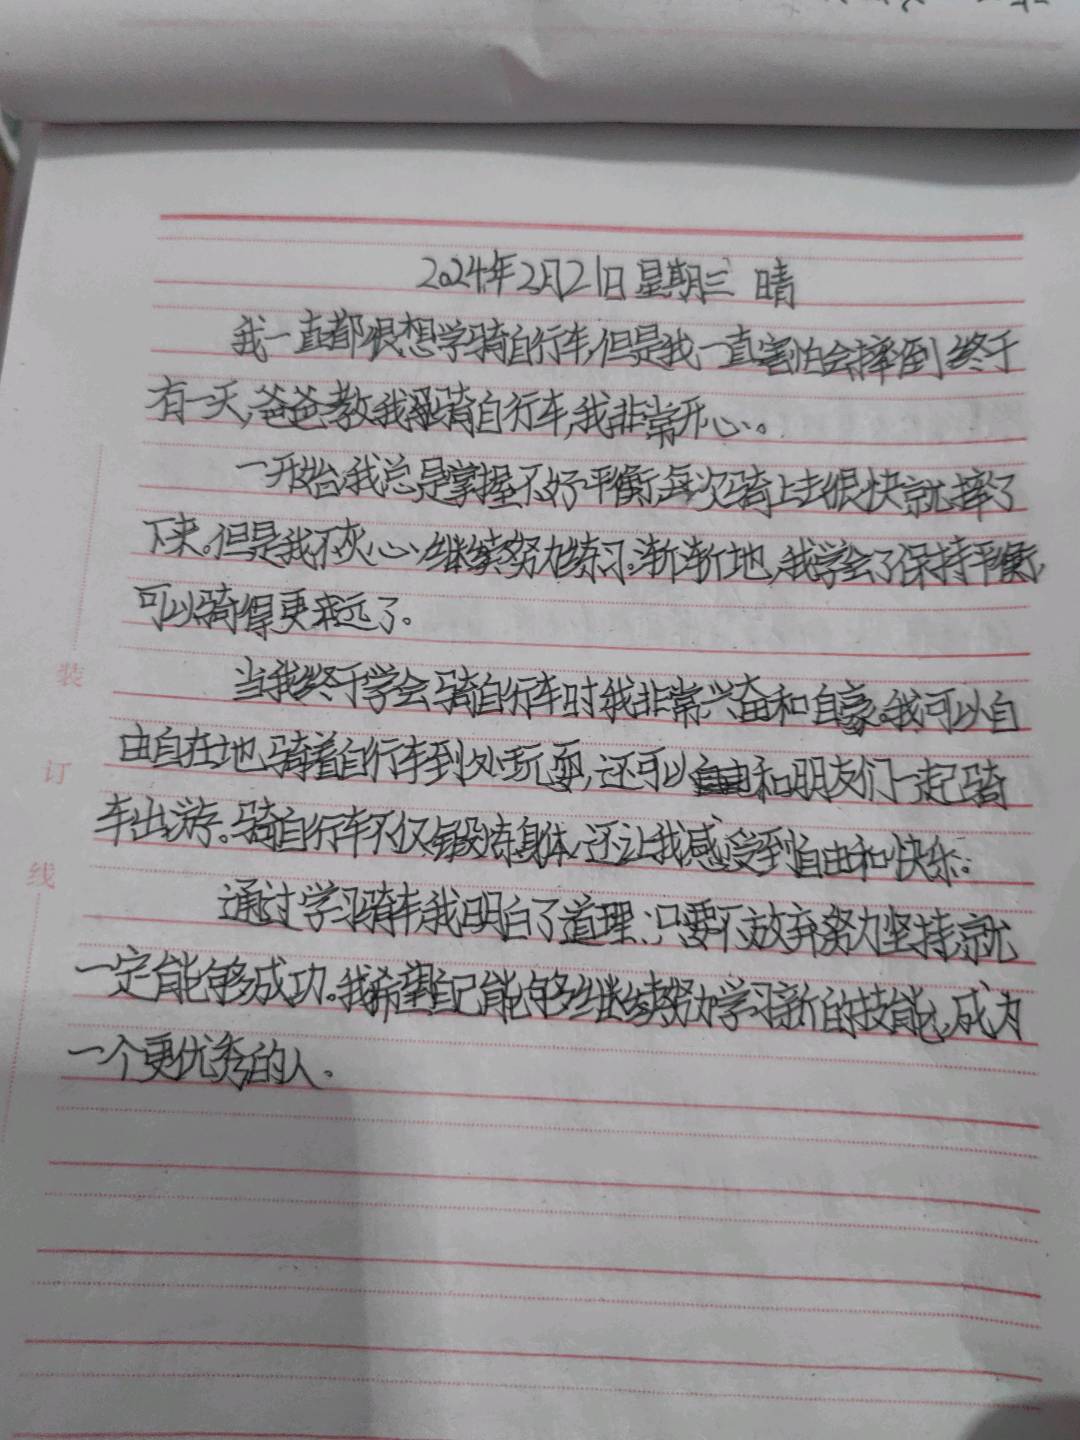 2024年2月21日 星期三 晴
我一直都很想学骑自行车,但是我一直害怕会摔倒 终于
有一天,爸爸教我骑自行车,我非常开心。
一开始,我总是掌握不好平衡,每次骑上去很快就摔了
下来。但是我不灰心,继续努力练习。渐渐地,我学会了保持平衡,
可以骑得更来远了。
当我终于学会骑自行车时,我非常兴奋和自豪。我可以自
由自在地骑着自行车到处玩耍,还可以和朋友们一起骑
车出游。骑自行车不仅锻炼身体,还让我感受到自由和快乐。
通过学习骑车,我明白了道理:只要不放弃努力坚持,就
一定能够成功。我希望自己能够继续努力学习新的技能,成为
一个更优秀的人。
装
订
线